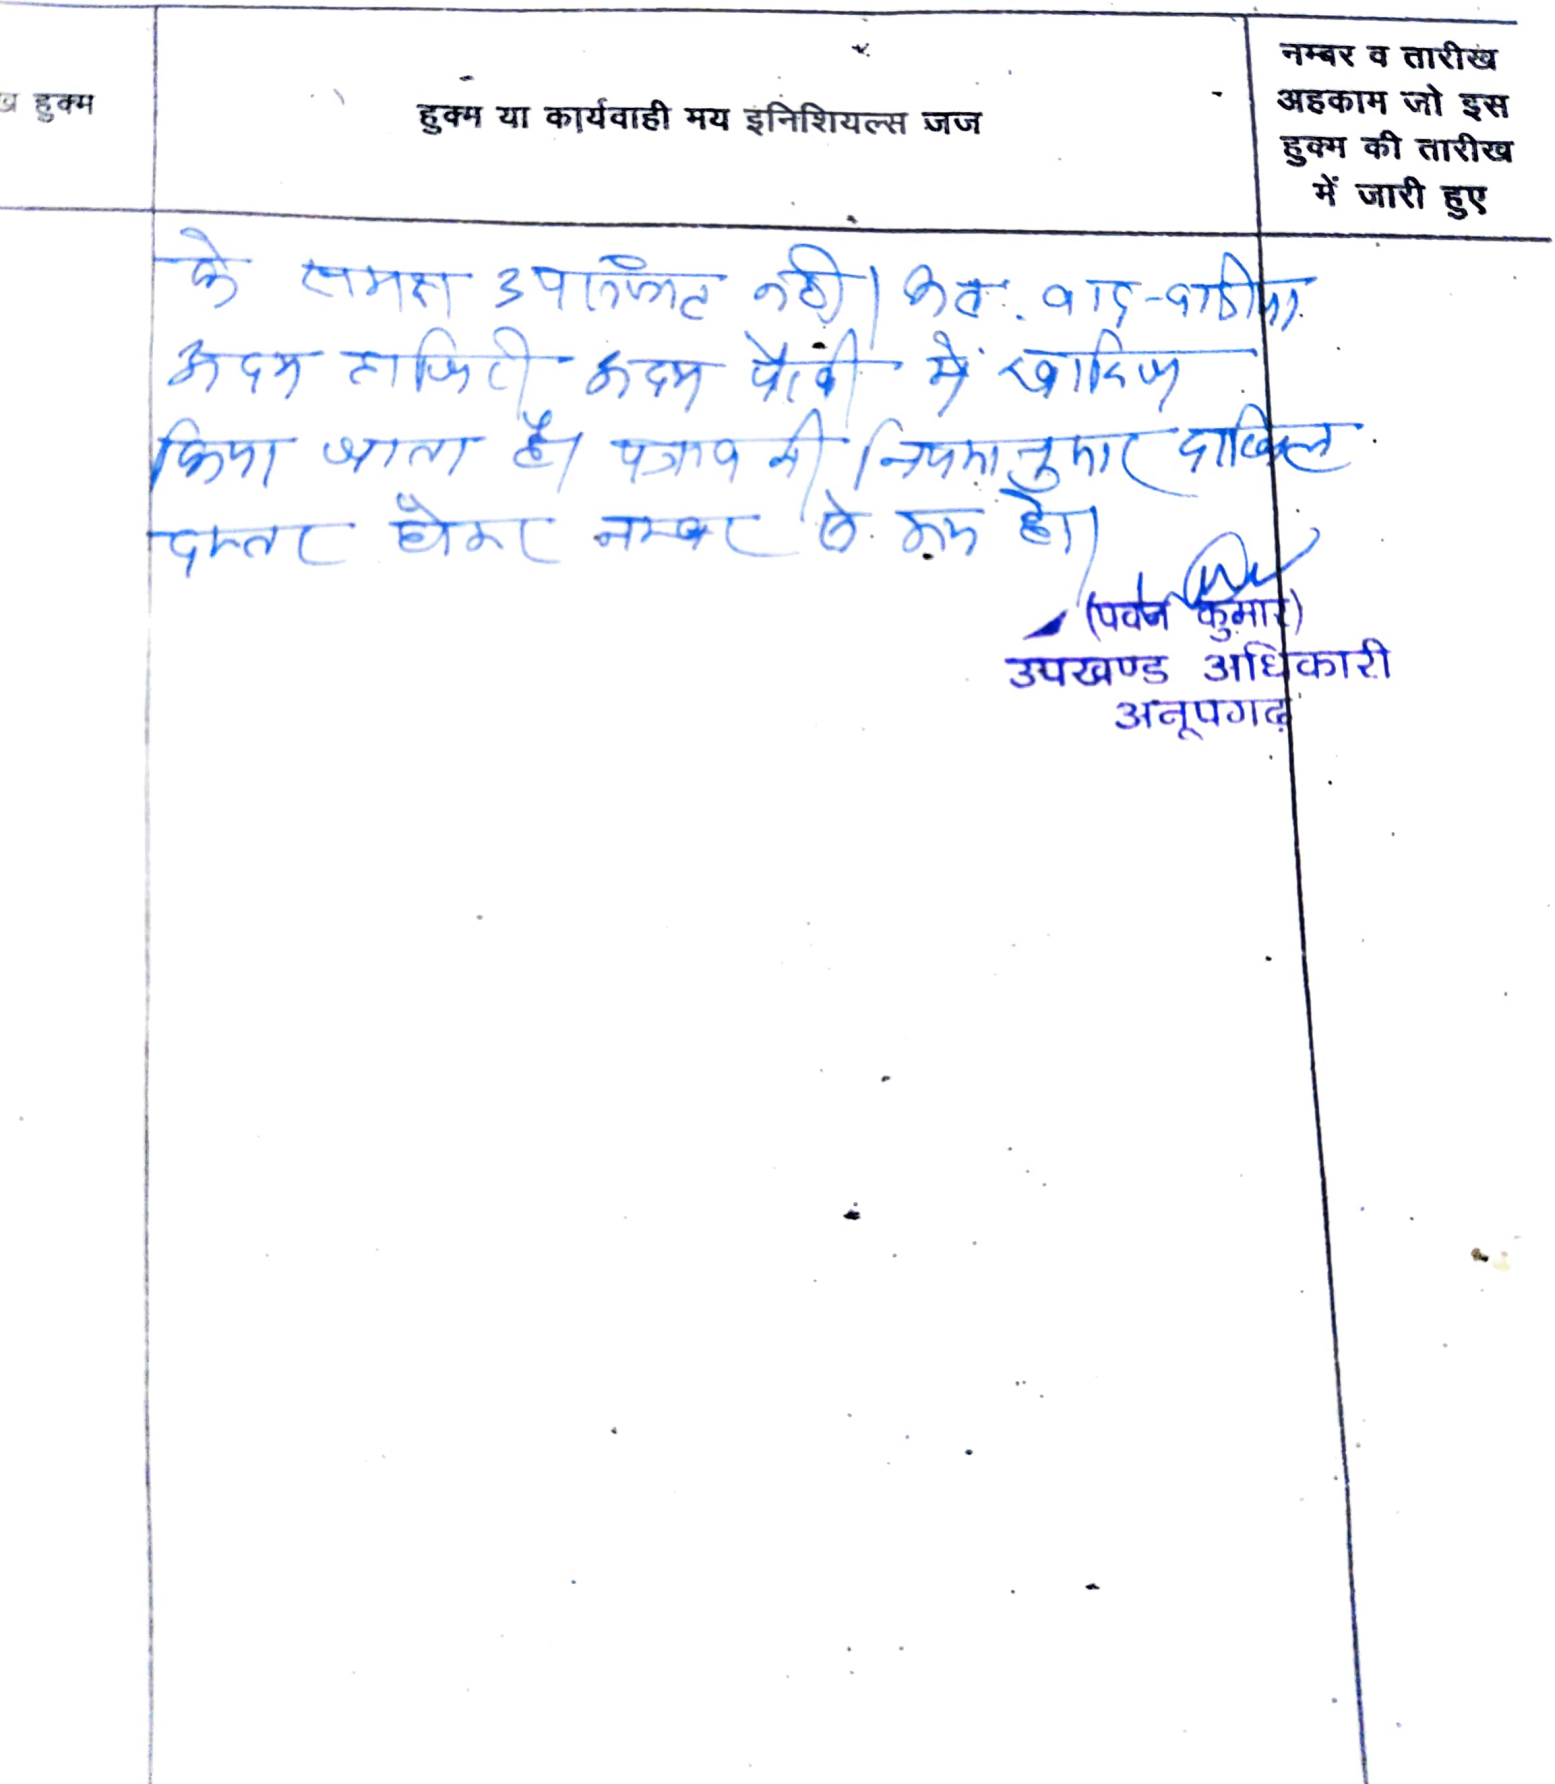 हुक्म
हुक्म या कार्यवाही मय इनिशियल्स जज
नम्बर व तारीख
अहकाम जो इस
हुक्म की तारीख
में जारी हुए
के समक्ष उपस्थित नही। अतः वाद-वादीया
अदम हाजिरी अदम पैरवी में खारिज
किया जाता है। पत्रावली नियमानुसार दाखिल
दफ्तर होकर नम्बर से कम हो।
(पवन कुमार)
उपखण्ड अधिकारी
अनूपगढ़